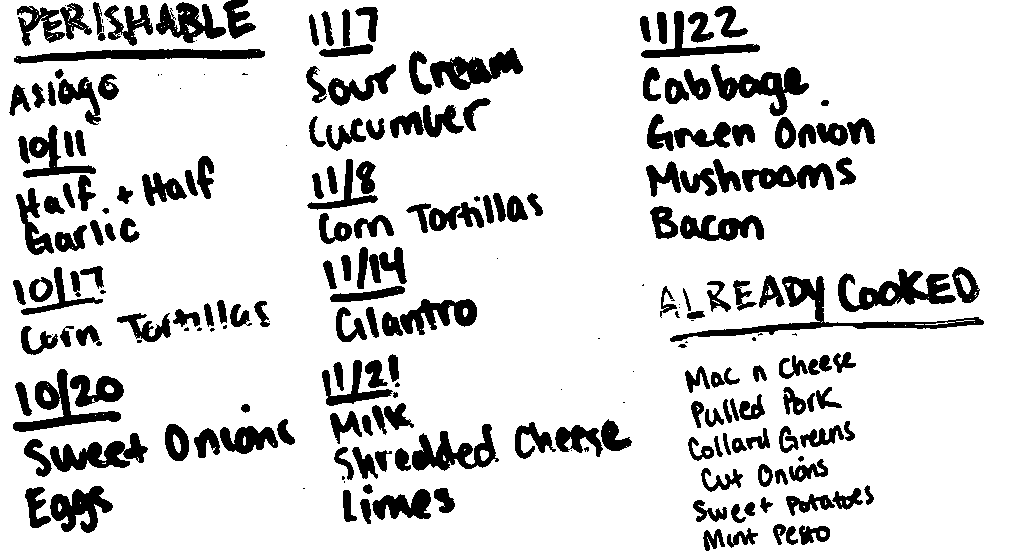 PERISHABLE
Asiago
10/11
Half + Half
Garlic
10/17
Corn Tortillas
10/20
Sweet Onions
Eggs
11/7
Sour Cream
Cucumber
11/8
Corn Tortillas
11/14
Cilantro
11/21
Milk
Shredded Cheese
Limes
11/22
Cabbage
Green Onion
Mushrooms
Bacon
ALREADY COOKED
Mac n Cheese
Pulled Pork
Collard Greens
Cut Onions
Sweet Potatoes
Mint Pesto